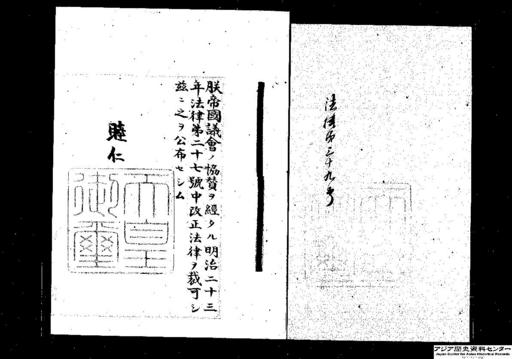 法律第三十九号
朕帝國議會ノ協賛ヲ經タル明治二十三
年法律第二十七號中改正法律ヲ裁可シ
玆ニ之ヲ公布セシム
睦仁
天皇
御璽
アジア歴史資料センター
Japan Center for Asian Historical Records